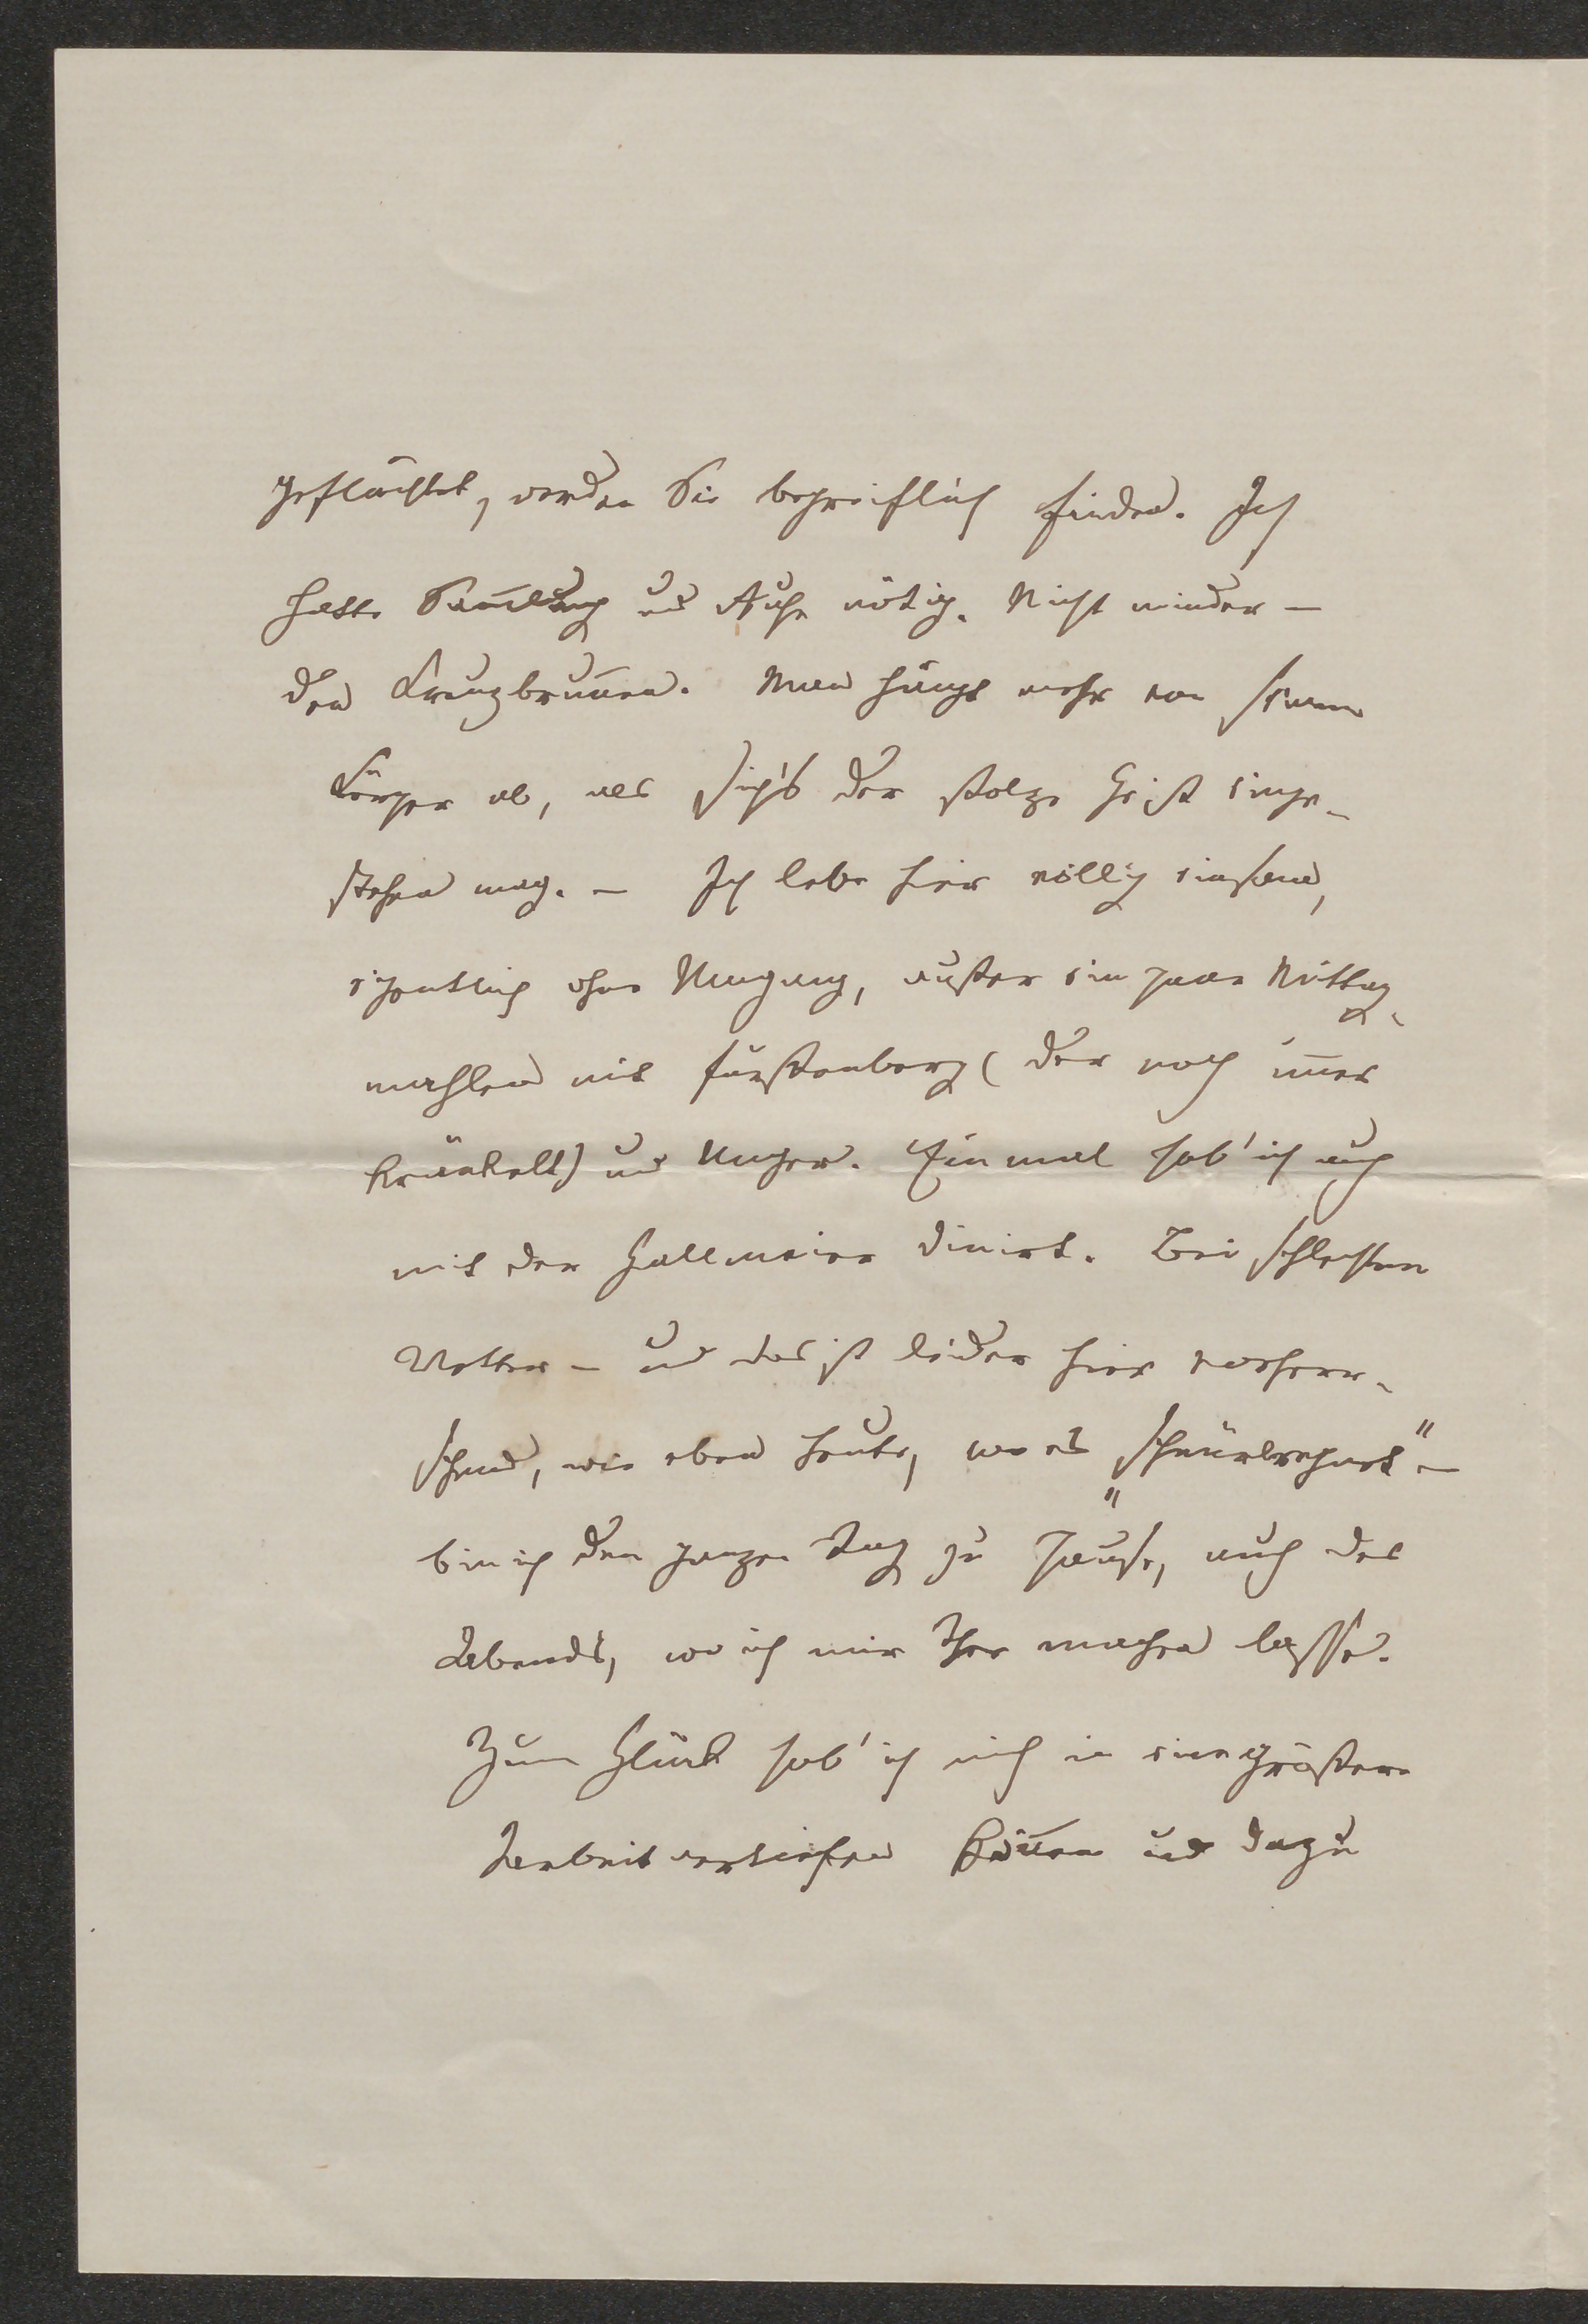 geflüchtet, werden Sie begreiflich finden. Ich
hatte Sam̅lung und Ruhe nötig. Nicht minder —
den Kreuzbrun̅en. Man hängt mehr von seinem
Körper ab, als sich's der stolze Geist einge-
stehen mag. — Ich lebe hier völlig einsam,
eigentlich ohne Umgang, außer ein paar Mittag-
mahlen mit Fürstenberg (der noch im̅er
kränkelt) und Unger. Einmal hab' ich auch
mit der Hallmeier dinirt. Bei schlechtem
Wetter — und das ist leider hier vorherr-
schend, wie eben heute, wo es „schnürlregnet" —
bin ich den ganzen Tag zu Hause, auch des
Abends, wo ich mir Thee machen lasse.
Zum Glück hab' ich mich in eine größere
Arbeit vertiefen kön̅en und dazu